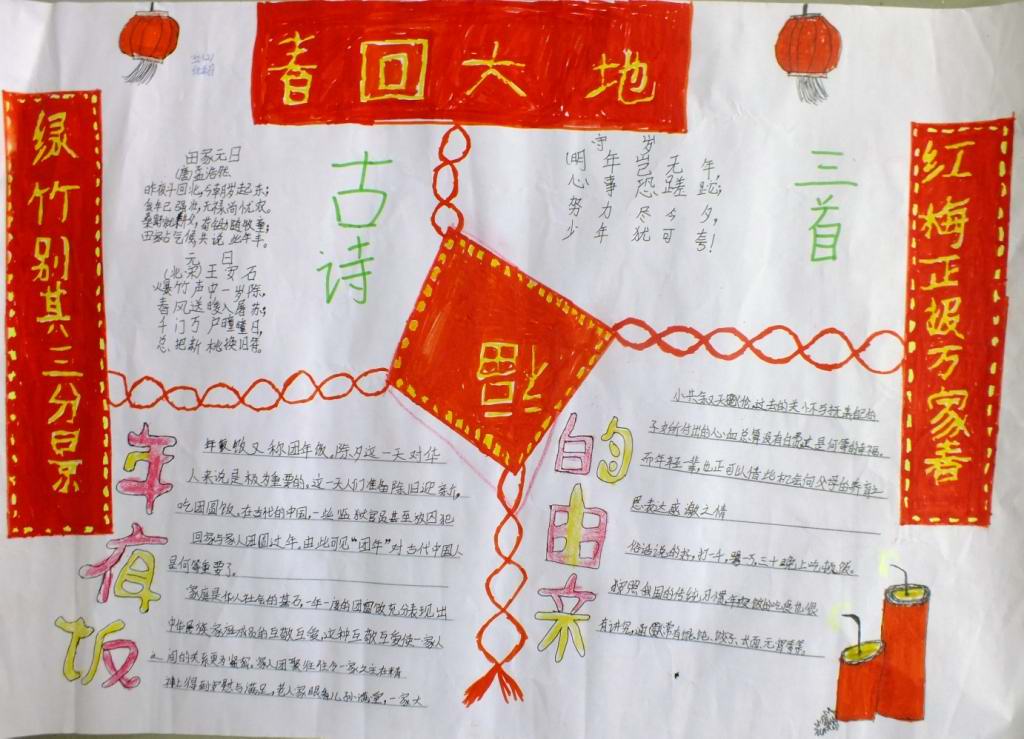 春回大地
绿竹别其三分景
红梅正报万家春
古诗
三首
田家元日
(唐)孟浩然
昨夜斗回北,今朝岁起东;
我年已强壮,无禄尚忧农。
桑野就耕父,荷锄随牧童;
田家占气候,共说此年丰。
元日
(北宋)王安石
爆竹声中一岁除,
春风送暖入屠苏;
千门万户曈曈日,
总把新桃换旧符。
守岁
(明年岂无年,
心事恐蹉跎;
努力尽今夕,
少年犹可夸!
福
年夜饭
的由来
年夜饭又称团年饭,除夕这一天对华
人来说是极为重要的。这一天人们准备除旧迎新,
吃团圆饭。在古代的中国,一些监狱官员甚至放囚犯
回家与家人团圆过年,由此可见“团年”对古代中国人
是何等重要了。
家庭是华人社会的基石,一年一度的团圆饭充分表现出
中华民族家庭成员的互敬互爱,这种互敬互爱使一家人
之间的关系更为紧密。家人团聚往往令一家之主在精
神上得到安慰与满足,老人家眼看儿孙满堂,一家大
小共叙天伦,过去的关怀与抚养
子女所付出的心血总算没有白费,这是何等的幸福。
而年轻一辈,也正可以借此机会向父母的养育之
恩表达感激之情
俗语说的好,打一千,骂一万,三十晚上吃顿饭。
按照我国的传统习惯,年夜饭的吃食也很
有讲究,通常有馄饨、饺子、长面、元宵等。